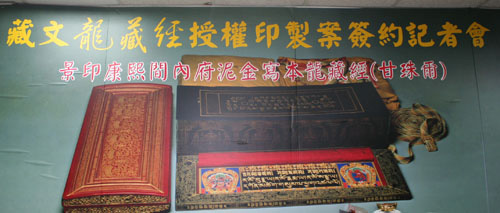 藏文龍藏經授權印製案簽約記者會
景印康熙間內府泥金寫本龍藏經(甘珠爾)